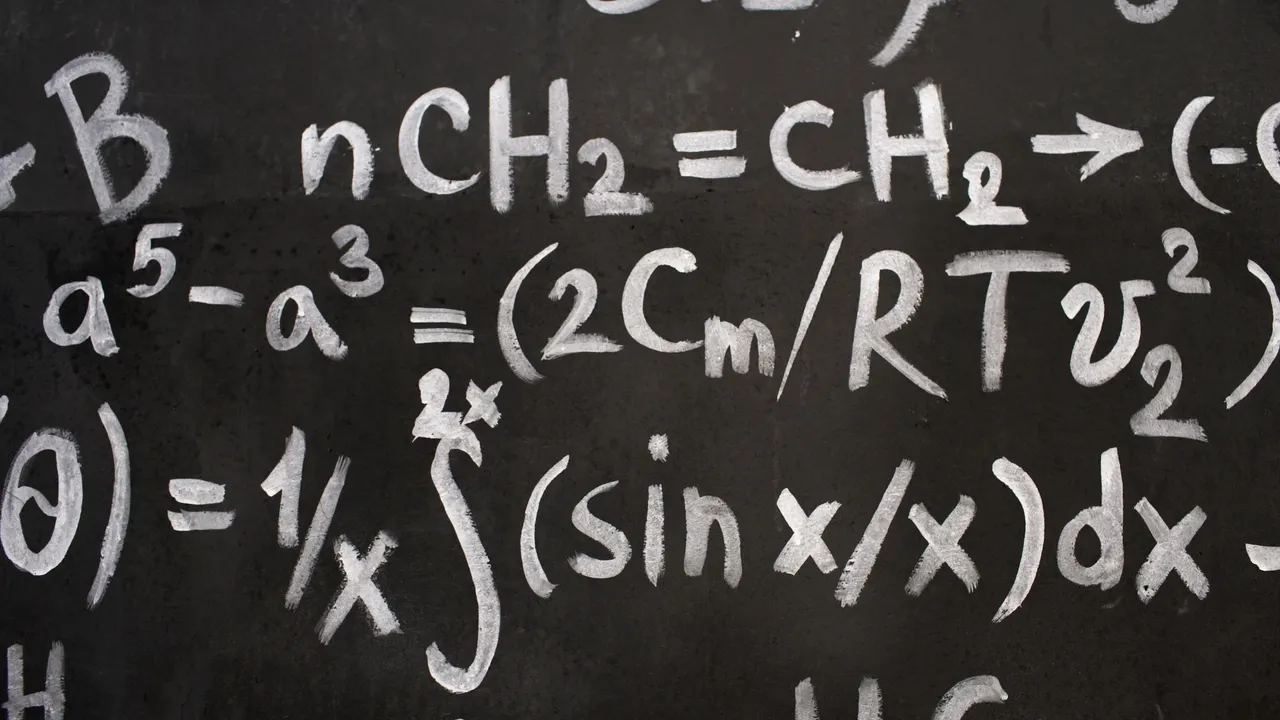 B nCH₂ = CH₂ → (-
a⁵ - a³ = (2Cm/RTv²₂)
θ) = 1/x ∫²ˣ (sin x/x)dx -
H